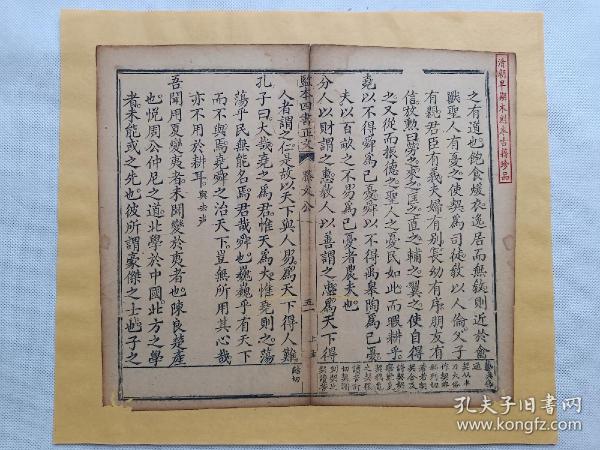 清朝早期木刻本古籍珍品
之有道也飽食煖衣逸居而無敎則近於禽
獸聖人有憂之使契為司徒敎以人倫父子
有親君臣有義夫婦有別長幼有序朋友有
信放勲曰勞之來之匡之直之輔之翼之使自得
之又從而振德之聖人之憂民如此而暇耕乎
堯以不得舜為己憂舜以不得禹皋陶為己憂
夫以百畝之不易為己憂者農夫也
分人以財謂之惠敎人以善謂之忠為天下得
監本四書正文 滕文公
人者謂之仁是故以天下與人易為天下得人難
孔子曰大哉堯之為君惟天為大惟堯則之蕩
蕩乎民無能名焉君哉舜也巍巍乎有天下
而不與焉堯舜之治天下豈無所用其心哉
亦不用於耕耳與去聲
吾聞用夏變夷者未聞變於夷者也陳良楚產
也悅周公仲尼之道北學於中國北方之學
者未能或之先也彼所謂豪傑之士也子之
孔夫子旧书网
www.kongfz.com